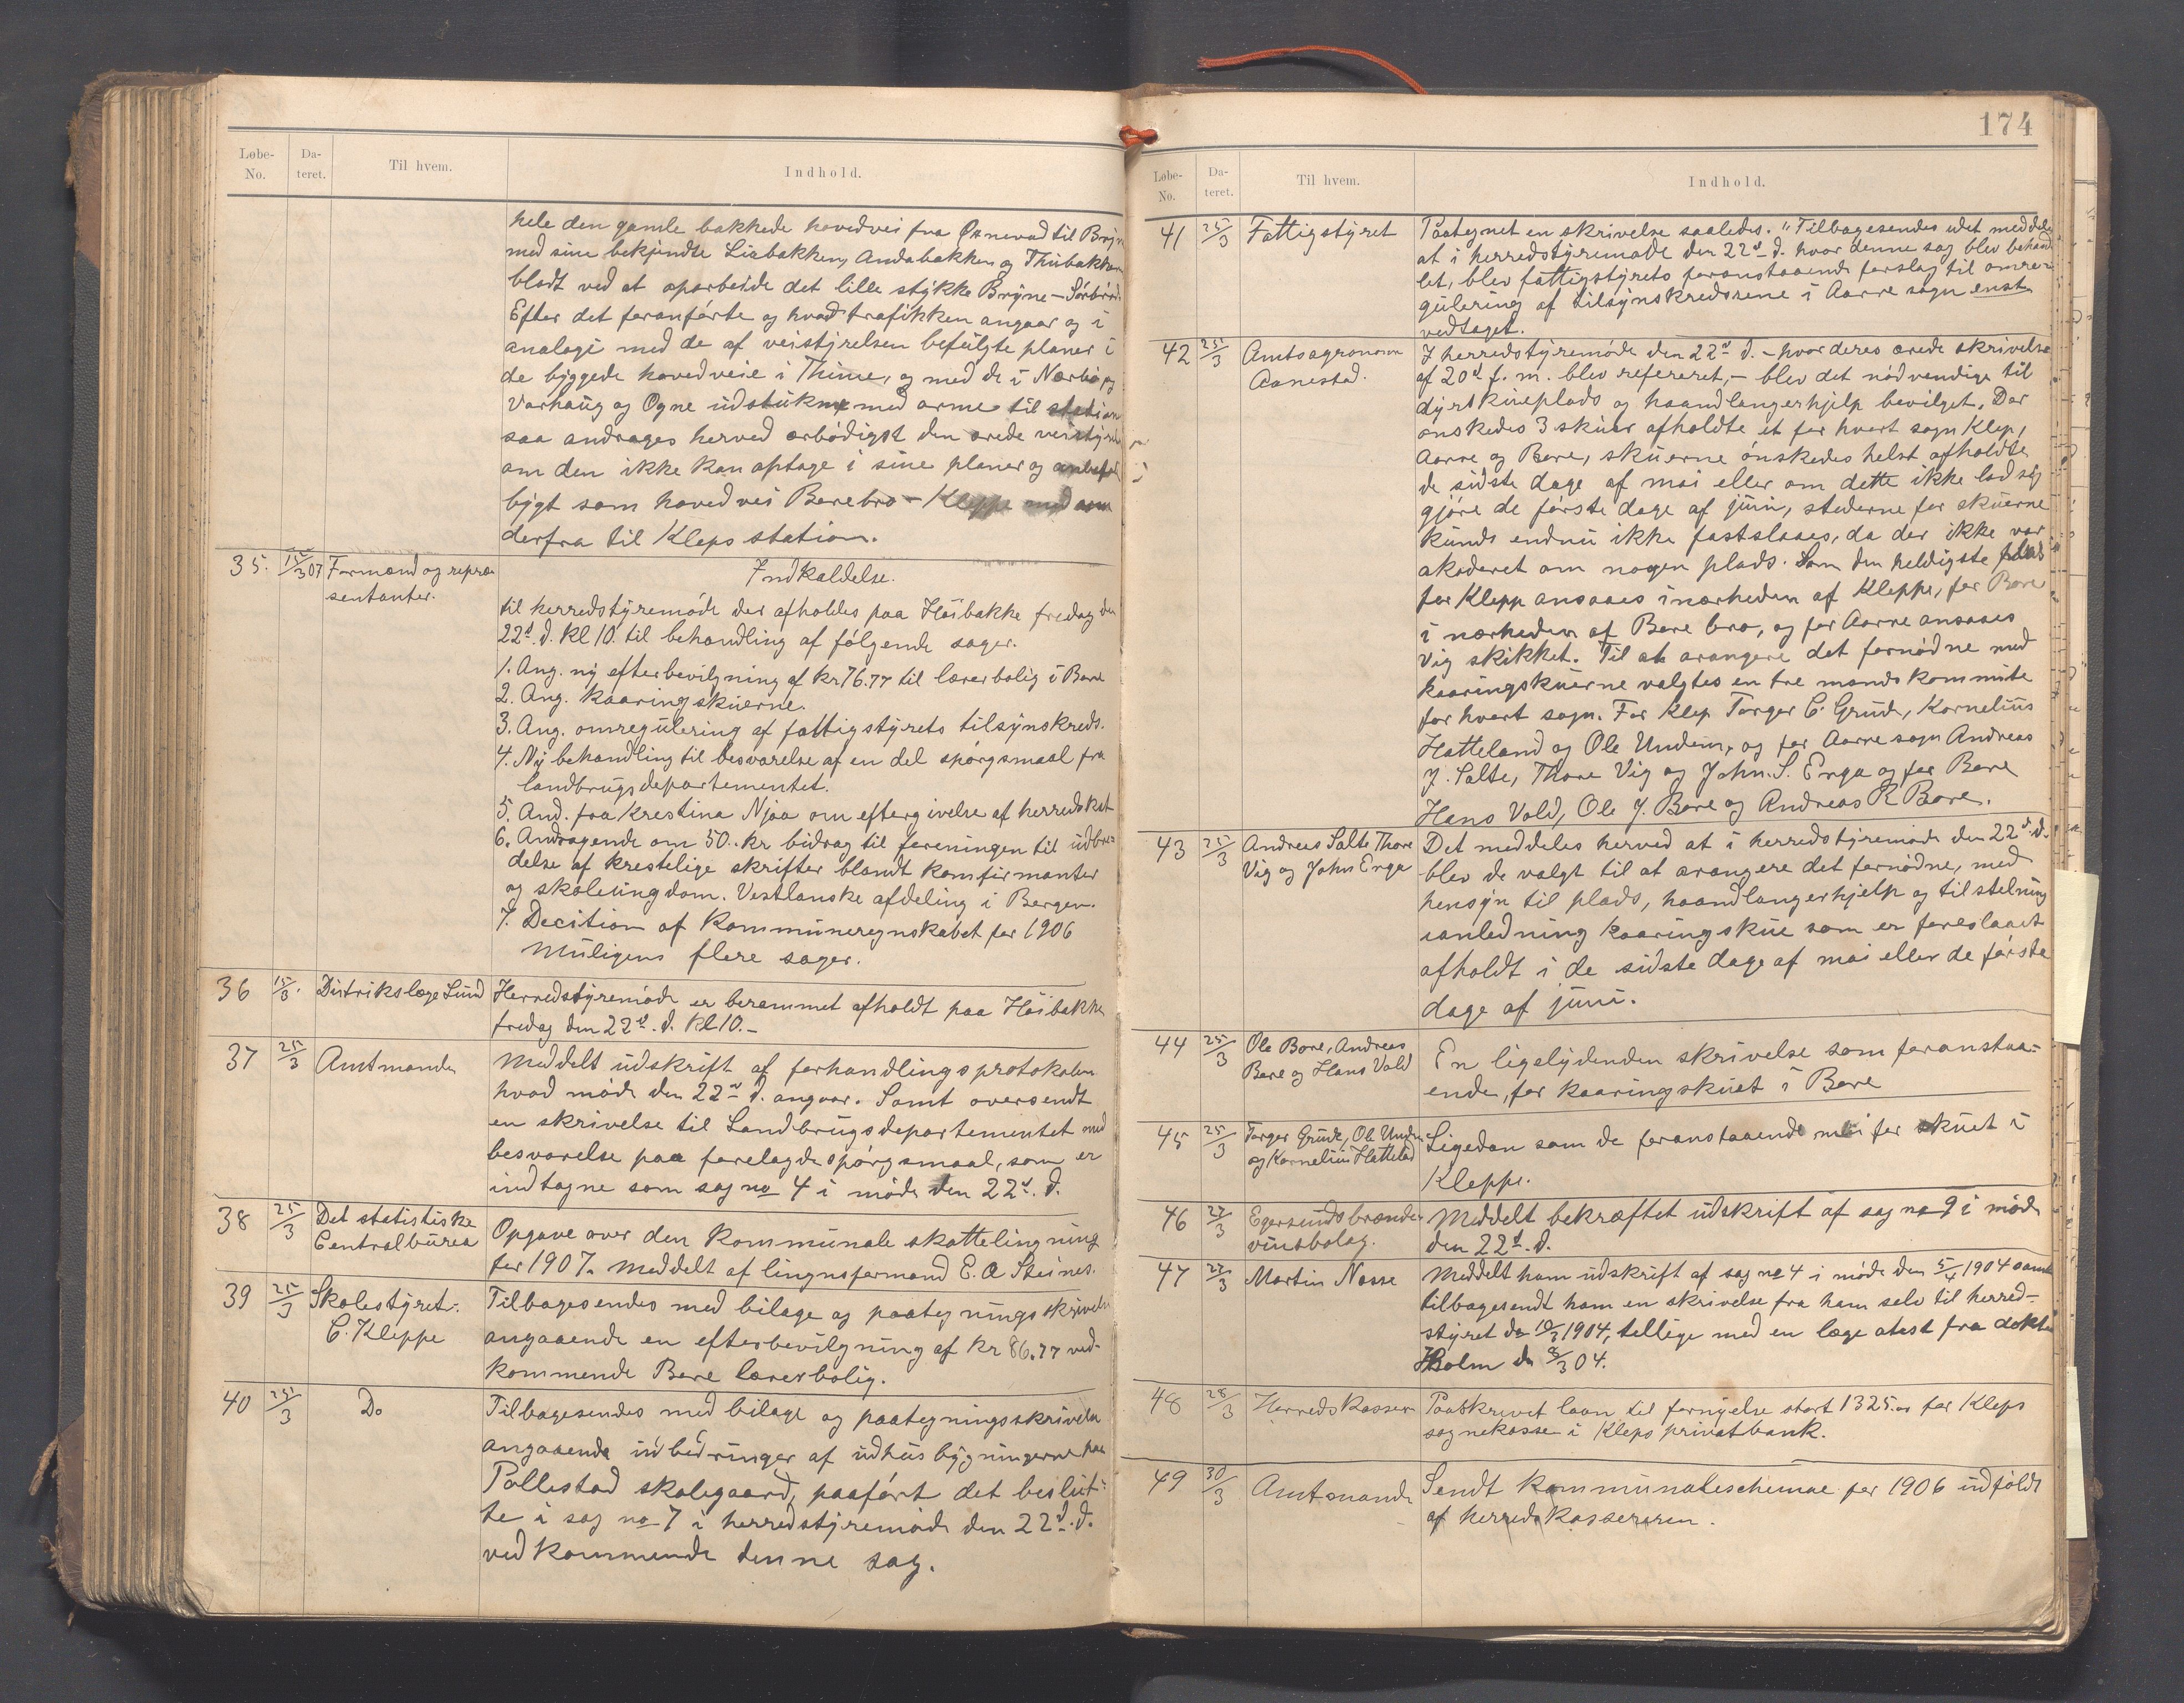 Løbe-No. Da-teret. Til hvem. Indhold.
hele den gamle bakkede hovedvei fra Øxnevad til Bryn
med sine bekjendte Liabakken, Andabakken og Thubakken
blodt ved at oparbeide det lille stykke Bryne—
Efter det foranførte og hvad trafikken angaar og i
analogi med de af veistyrelsen befulgte planer i
de byggede hovedveie i Thime, og med de i Nærbø og
Varhaug og Ogne udstukne med arme til station
saa andrages herved ærbødigst den ærede veistyre
om den ikke kan optage i sine planer og anbefal
bygt som hovedvei Borebro — Kleppe med arm
derfra til Kleps station.
35. 15/3 07 Formænd og repræ- Indkaldelse.
sentanter.
til herredstyremøde der afholdes paa Høibakke fredag den
22d. d. kl 10. til behandling af følgende sager.
1. Ang. ny efterbevilgning af kr 76.77 til lærerbolig i Bore
2. Ang. kaaringskuerne.
3. Ang. omregulering af fattigstyrets tilsynskreds.
4. Ny behandling til besvarelse af en del spørgsmaal fra
landbrugsdepartementet.
5. And. fra Krestina Njaa om eftergivelse af herredskat
6. Andragende om 50.. kr bidrag til foreningen til udbre-
delse af krestelige skrifter blandt konfirmanter
og skoleungdom. Vestlanske afdeling i Bergen.
7. Decition af Kommuneregnskabet for 1906
Muligens flere sager.
36 15/3. Distrikslæge Lund Herredstyremøde er berammet afholdt paa Høibakke
fredag den 22d. d. kl 10.–
37 25/3 Amtmanden Meddelt udskrift af forhandlingsprotokolen
hvad møde den 22d d. angaar. Samt oversendt
en skrivelse til Landbrugsdepartementet med
besvarelse paa forelagde spørgsmaal, som er
indtagne som sag no 4 i møde den 22d. d.
38 25/3 Det statistiske
Centralburea Opgave over den kommunale skatteligning
for 1907. Meddelt af lingnsformand E. A Steines.
39 25/3 Skolestyret. Tilbagesendes med bilage og paategningsskrivelse
C. Kleppe angaaende en efterbevilgning af kr 86.77 ved-
kommende Bore lærerbolig.
40 25/3 Do Tilbagesendes med bilage og paategningsskrivelse
angaaende udbedringer af udhusbygningerne paa
Pollestad skolegaard, paaført det beslut-
te i sag no 7 i herredstyremøde den 22d. d.
vedkommende denne sag.
174
Løbe-No. Da-teret. Til hvem. Indhold.
41 25/3 Fattigstyret Paategnet en skrivelse saaledes. "Tilbagesendes idet meddeles
at i herredstyremøde den 22d d. hvor denne sag blev behand
let, blev fattigstyrets foranstaaende forslag til omre-
gulering af tilsynskredsene i Aarre sogn enst
vedtaget.
42 25/3 Amtsagronom I herredstyremøde den 22d d. – hvor deres ærede skrivelse
Aanestad. af 20d f. m. blev refereret, – blev det nødvendige til
dyrskueplads og haandlangerhjelp bevilget. Der
ønskedes 3 skuer afholdte et for hvert sogn Klep,
Aarre og Bore, skuerne ønskedes helst afholdte
de sidste dage af mai eller om dette ikke lod sig
gjøre de første dage af juni, stederne for skuerne
kunde endnu ikke fastslaaes, da der ikke var
akoderet om nogen plads. Som den heldigste plads
for Klepp ansaaes i nærheden af Kleppe, for Bore
i nærheden af Bore bro, og for Aarre ansaaes
Vig skikket. Til at arangere det fornødne med
kaaringskuerne valgtes en tre mands kommite
for hvert sogn. For Klep Torger C. Grude, Kornelius
Hatteland og Ole Undem, og for Aarre sogn Andreas
J. Salte, Thore Vig og John. S. Erga og for Bore
Hans Vold, Ole J. Bore og Andreas R Bore.
43 25/3 Andreas Salte Thore Det meddeles herved at i herredstyremøde den 22d. d.
Vig og John Erga blev de valgt til at arangere det fornødne, med
hensyn til plads, haandlangerhjelp og tilstelning
ianledning kaaringskue som er foreslaaet
afholdt i de sidste dage af mai eller de første
dage af juni.
44 25/3 Ole Bore, Andreas
Bore og Hans Vold En ligelydenden skrivelse som foranstaa-
ende, for kaaringskuet i Bore
45 25/3 Torger Grude, Ole Undem
og Kornelius Hatteland Ligedan som de foranstaaende men for skuet i
Kleppe.
46 27/3 Egersunds brænde- Meddelt bekræftet udskrift af sag no 9 i møde
vinsbolag. den 22d. d.
47 27/3 Martin Nasse Meddelt ham udskrift af sag no 4 i møde den 5/4 1904 samt
tilbagesendt ham en skrivelse fra ham selv til herred-
styret da 10/3 1904, tellige med en læge atest fra doktor
Holm da 8/3 04.
48 28/3 Herredskasser Paaskrevet laan til fornyelse stort 1325.00 for Kleps
sognekasse i Kleps privatbank.
49 30/3 Amtmanden Sendt kommunaleschemae for 1906 udfyldt
af herredskassereren.